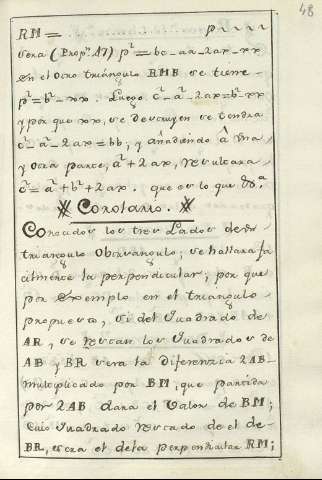 48
RM = p
sera (Prop.ⁿ 47) p² = bc - aa - 2ax - xx
en el otro triángulo RMB se tiene
p² = b² - xx. Luego c² - a² - 2ax = b² - xx
y por que xx, se destruyen se tendra
c² - a² - 2ax = bb; y añadiendo a² a una
y otra parte, a² + 2ax, resultara
c² = a² + b² + 2ax. que es lo que
Corolario.
Conocidos los tres Lados de un
triangulo Obtusangulo, se hallara fa
cilmente la perpendicular; por que
por Exemplo en el triangulo
propuesto, si del Quadrado de
AR, se restan los Quadrados de
AB y BR sera la diferenzia 2AB
multiplicado por BM, que partida
por 2AB dara el Valor de BM;
Cuio Quadrado restado de el de
BR, es era el dela perpendicular RM;